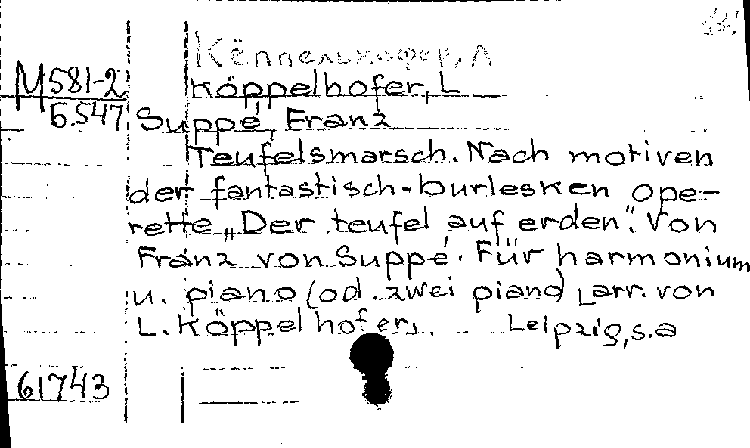 Кёппельхофер, Л
M 581-2
5.547
Köppelhofer, L
Suppé, Franz
Teufelsmarsch. Nach motiven
der fantastisch-burlesken ope-
rette „Der teufel auf erden“. Von
Franz von Suppé. Für harmonium
u. piano (od. zwei piano) arr. von
L. Köppelhofer. Leipzig, s.a
61743